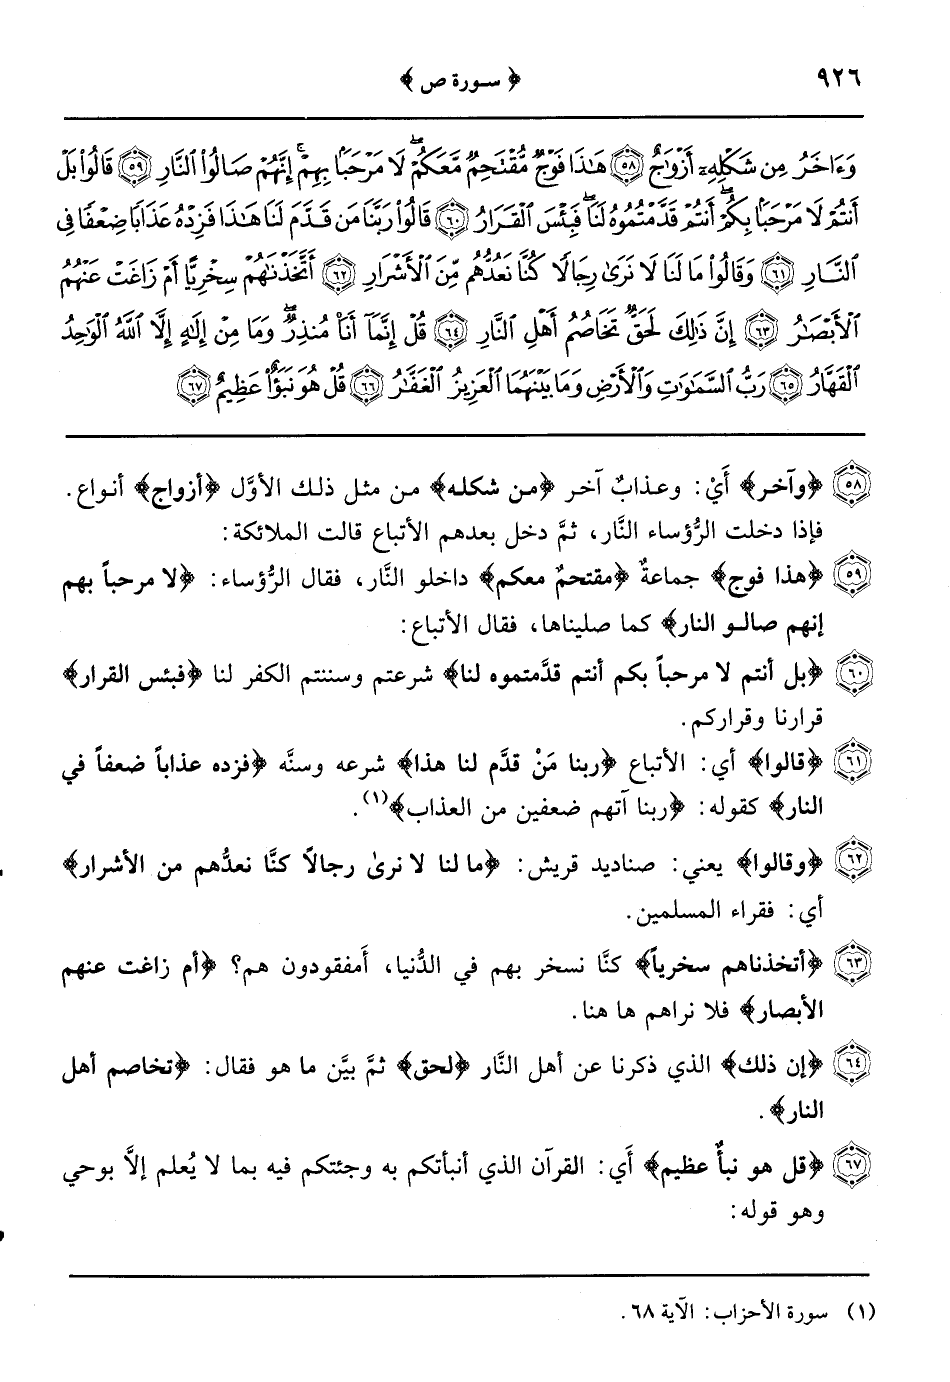 ٩٢٦
﴿ سورة ص ﴾
وَءَاخَرُ مِن شَكْلِهِۦٓ أَزْوَٰجٌ ٥٨ هَـٰذَا فَوْجٌ مُّقْتَحِمٌ مَّعَكُمْ ۖ لَا مَرْحَبًۢا بِهِمْ ۚ إِنَّهُمْ صَالُوا۟ ٱلنَّارِ ٥٩ قَالُوا۟ بَلْ
أَنتُمْ لَا مَرْحَبًۢا بِكُمْ ۖ أَنتُمْ قَدَّمْتُمُوهُ لَنَا ۖ فَبِئْسَ ٱلْقَرَارُ ٦٠ قَالُوا۟ رَبَّنَا مَن قَدَّمَ لَنَا هَـٰذَا فَزِدْهُ عَذَابًا ضِعْفًا فِى
ٱلنَّارِ ٦١ وَقَالُوا۟ مَا لَنَا لَا نَرَىٰ رِجَالًا كُنَّا نَعُدُّهُم مِّنَ ٱلْأَشْرَارِ ٦٢ أَتَّخَذْنَـٰهُمْ سِخْرِيًّا أَمْ زَاغَتْ عَنْهُمُ
ٱلْأَبْصَـٰرُ ٦٣ إِنَّ ذَٰلِكَ لَحَقٌّ تَخَاصُمُ أَهْلِ ٱلنَّارِ ٦٤ قُلْ إِنَّمَآ أَنَا۠ مُنذِرٌ ۖ وَمَا مِنْ إِلَـٰهٍ إِلَّا ٱللَّهُ ٱلْوَٰحِدُ
ٱلْقَهَّارُ ٦٥ رَبُّ ٱلسَّمَـٰوَٰتِ وَٱلْأَرْضِ وَمَا بَيْنَهُمَا ٱلْعَزِيزُ ٱلْغَفَّـٰرُ ٦٦ قُلْ هُوَ نَبَؤٌا۟ عَظِيمٌ ٦٧
٥٨ ﴿وآخر﴾ أَيْ: وعذابٌ آخر ﴿من شكله﴾ من مثل ذلك الأوَّل ﴿أزواج﴾ أنواع.
فإذا دخلت الرُّؤساء النَّار، ثمَّ دخل بعدهم الأتباع قالت الملائكة:
٥٩ ﴿هذا فوج﴾ جماعةٌ ﴿مقتحمٌ معكم﴾ داخلو النَّار، فقال الرُّؤساء: ﴿لا مرحباً بهم
إنهم صالو النار﴾ كما صليناها، فقال الأتباع:
٦٠ ﴿بل أنتم لا مرحباً بكم أنتم قدَّمتموه لنا﴾ شرعتم وسننتم الكفر لنا ﴿فبئس القرار﴾
قرارنا وقراركم.
٦١ ﴿قالوا﴾ أي: الأتباع ﴿ربنا مَنْ قدَّم لنا هذا﴾ شرعه وسنَّه ﴿فزده عذاباً ضعفاً في
النار﴾ كقوله: ﴿ربنا آتهم ضعفين من العذاب﴾(١).
٦٢ ﴿وقالوا﴾ يعني: صناديد قريش: ﴿ما لنا لا نرىٰ رجالاً كنَّا نعدُّهم من الأشرار﴾
أي: فقراء المسلمين.
٦٣ ﴿أتخذناهم سخرياً﴾ كنَّا نسخر بهم في الدُّنيا، أَمفقودون هم؟ ﴿أم زاغت عنهم
الأبصار﴾ فلا نراهم ها هنا.
٦٤ ﴿إن ذلك﴾ الذي ذكرنا عن أهل النَّار ﴿لحق﴾ ثمَّ بيَّن ما هو فقال: ﴿تخاصم أهل
النار﴾.
٦٧ ﴿قل هو نبأٌ عظيم﴾ أَي: القرآن الذي أنبأتكم به وجئتكم فيه بما لا يُعلم إلاَّ بوحي
وهو قوله:
(١) سورة الأحزاب: الآية ٦٨.